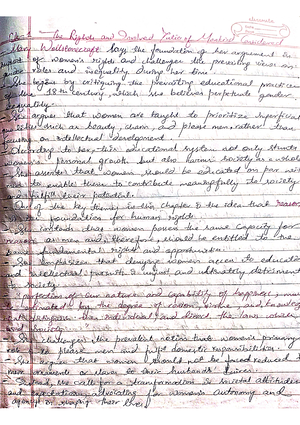 Ch-1 The Rights and Involved Duties of Mankind Considered
Mary Wollstonecraft lays the foundation of her argument in
support of women's rights and challenges the prevailing views on
gender roles and inequality during her time.
She begins by critiquing the prevailing educational practices
18th century, which she believes perpetuate gender
inequality.
She argues that women are taught to prioritize superficial
such as beauty, charm, and please men, rather than
intellectual development.
According to her, this educational system not only stunts
women's personal growth but also harms society as a whole
She that women should be educated on par with
to enable them to contribute meaningfully to society
and fulfill their potential.
the key in this chapter is the idea that reason
foundation for human rights.
She contends that women possess the same capacity for
reason as men and therefore, should be entitled to the
same fundamental rights and opportunities.
She that denying women access to education
and intellectual pursuits is unjust and ultimately detrimental
to society.
perfection of our nature and capability of happiness must
be estimated by the degree of reason, virtue, and knowledge
that distinguish the individual and direct the laws which
society
- She challenges the prevalent notion that women's primary
is to please men and fulfil domestic responsibilities.
- She argues that women should not be reduced to
mere ornaments or slaves to their husbands' desires.
- Instead, she calls for a transformation in societal attitudes
and expectations, advocating for women's autonomy and
agency in shaping their lives.